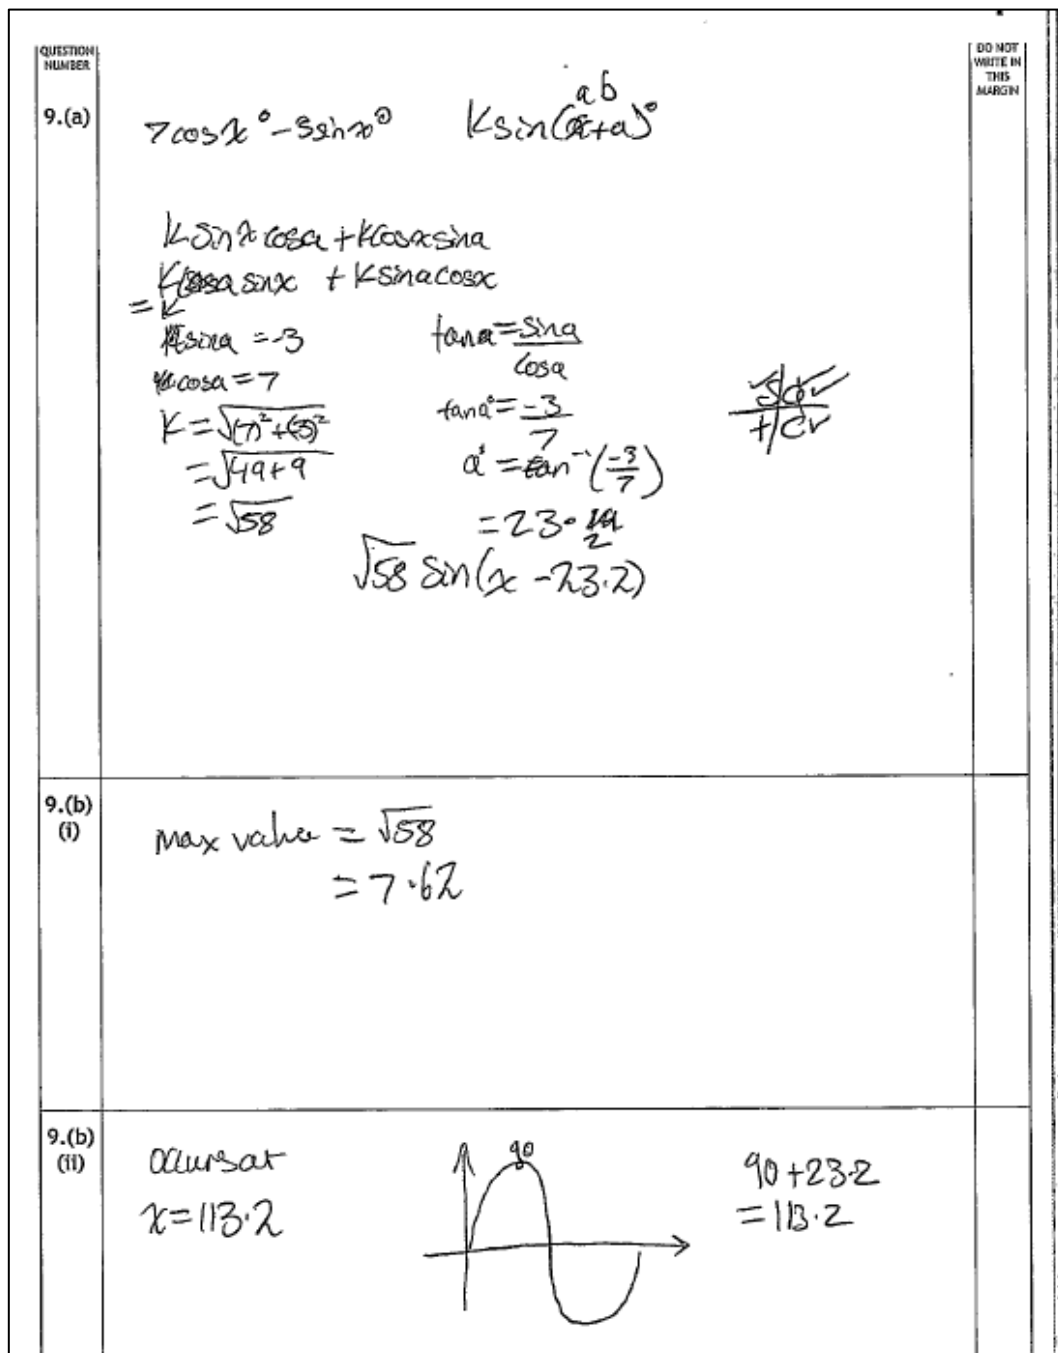 QUESTION
NUMBER
DO NOT
WRITE IN
THIS
MARGIN
9.(a)
7cosx° - 3sinx°
a b
Ksin(x+a)°
Ksinxcosa + Kcosxsina
= Kcosasinx + Ksinacosx
Ksina = -3
Kcosa = 7
K = √(7)² + (-3)²
= √49+9
= √58
tana = sina/cosa
tana° = -3/7
a° = tan⁻¹(-3/7)
= 23.2
S a
T C
√58 sin(x - 23.2)
9.(b)
(i)
max value = √58
= 7.62
9.(b)
(ii)
occurs at
x = 113.2
90
90 + 23.2
= 113.2